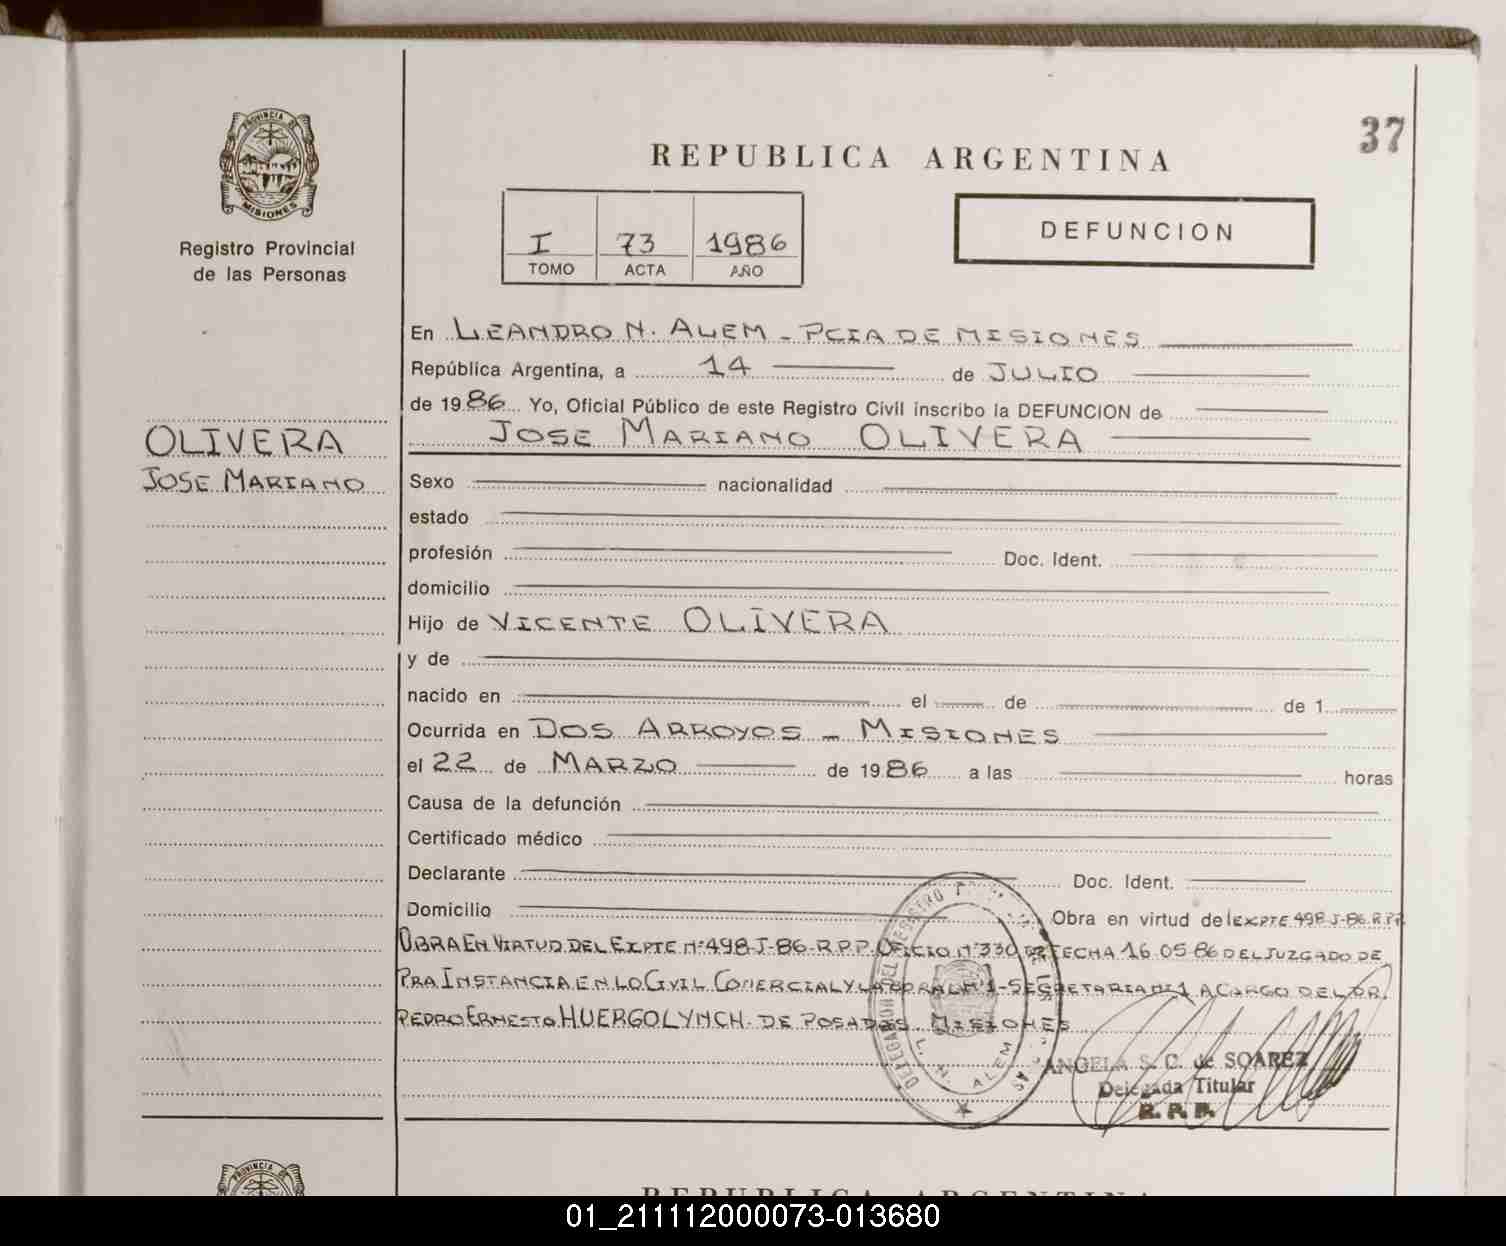 37
PROVINCIA DE
MISIONES
Registro Provincial
de las Personas
REPUBLICA ARGENTINA
I 73 1986
TOMO ACTA AÑO
DEFUNCION
OLIVERA
JOSE MARIANO
En LEANDRO N. ALEM - PCIA DE MISIONES
República Argentina, a 14 de JULIO
de 1986 Yo, Oficial Público de este Registro Civil inscribo la DEFUNCION de
JOSE MARIANO OLIVERA
Sexo nacionalidad
estado
profesión Doc. Ident.
domicilio
Hijo de VICENTE OLIVERA
y de
nacido en el de de 1
Ocurrida en DOS ARROYOS - MISIONES
el 22 de MARZO de 1986 a las horas
Causa de la defunción
Certificado médico
Declarante Doc. Ident.
Domicilio Obra en virtud del EXPTE 498-J-86.R.P.P.
OBRA EN VIRTUD DEL EXPTE Nº 498-J-86-R.P.P. OFICIO Nº 330 DE FECHA 16.05.86 DEL JUZGADO DE
PRA INSTANCIA EN LO CIVIL COMERCIAL Y LABORAL Nº1-SECRETARIA Nº1 A CARGO DEL DR.
PEDRO ERNESTO HUERGO LYNCH. DE POSADAS MISIONES
DELEGACION DEL REGISTRO
L. N. ALEM
ANGELA S. C. de SOAREZ
Delegada Titular
R. P. P.
PROVINCIA DE
REPUBLICA ARGENTINA
01_211112000073-013680